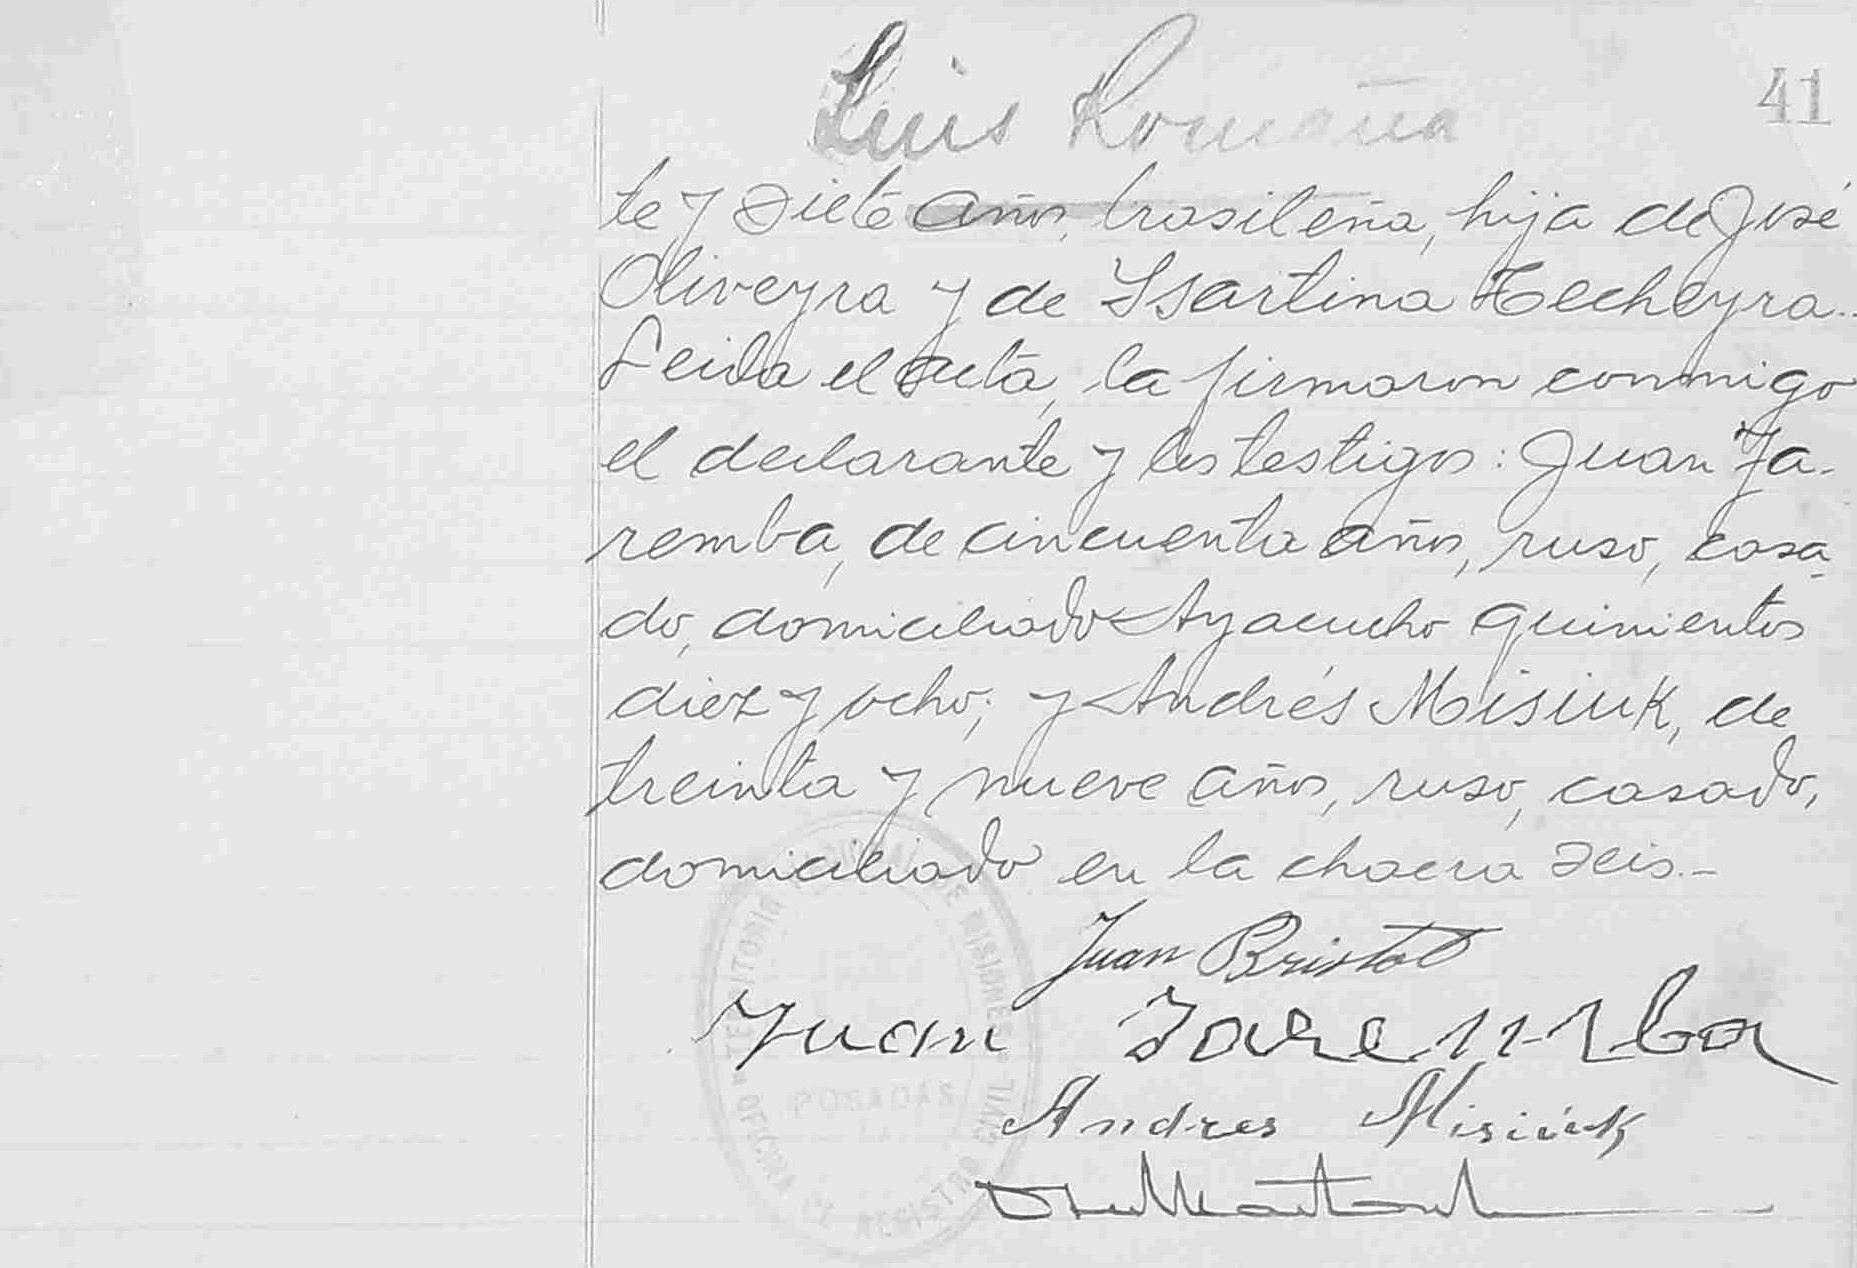 Luis Romaña
41
te y siete años, brasileña, hija de José
Oliveyra y de Isartina Techeyra.-
Leida el acta, la firmaron conmigo
el declarante y los testigos: Juan Ja-
remba, de cincuenta años, ruso, casa-
do, domiciliado Ayacucho quinientos
diez y ocho; y Andrés Misiuk, de
treinta y nueve años, ruso, casado,
domiciliado en la chacra seis.-
Juan Bristol
Juan Jaremba
Andres Misiuk
TERRITORIO NACIONAL DE MISIONES
OFICINA DE REGISTRO CIVIL
POSADAS